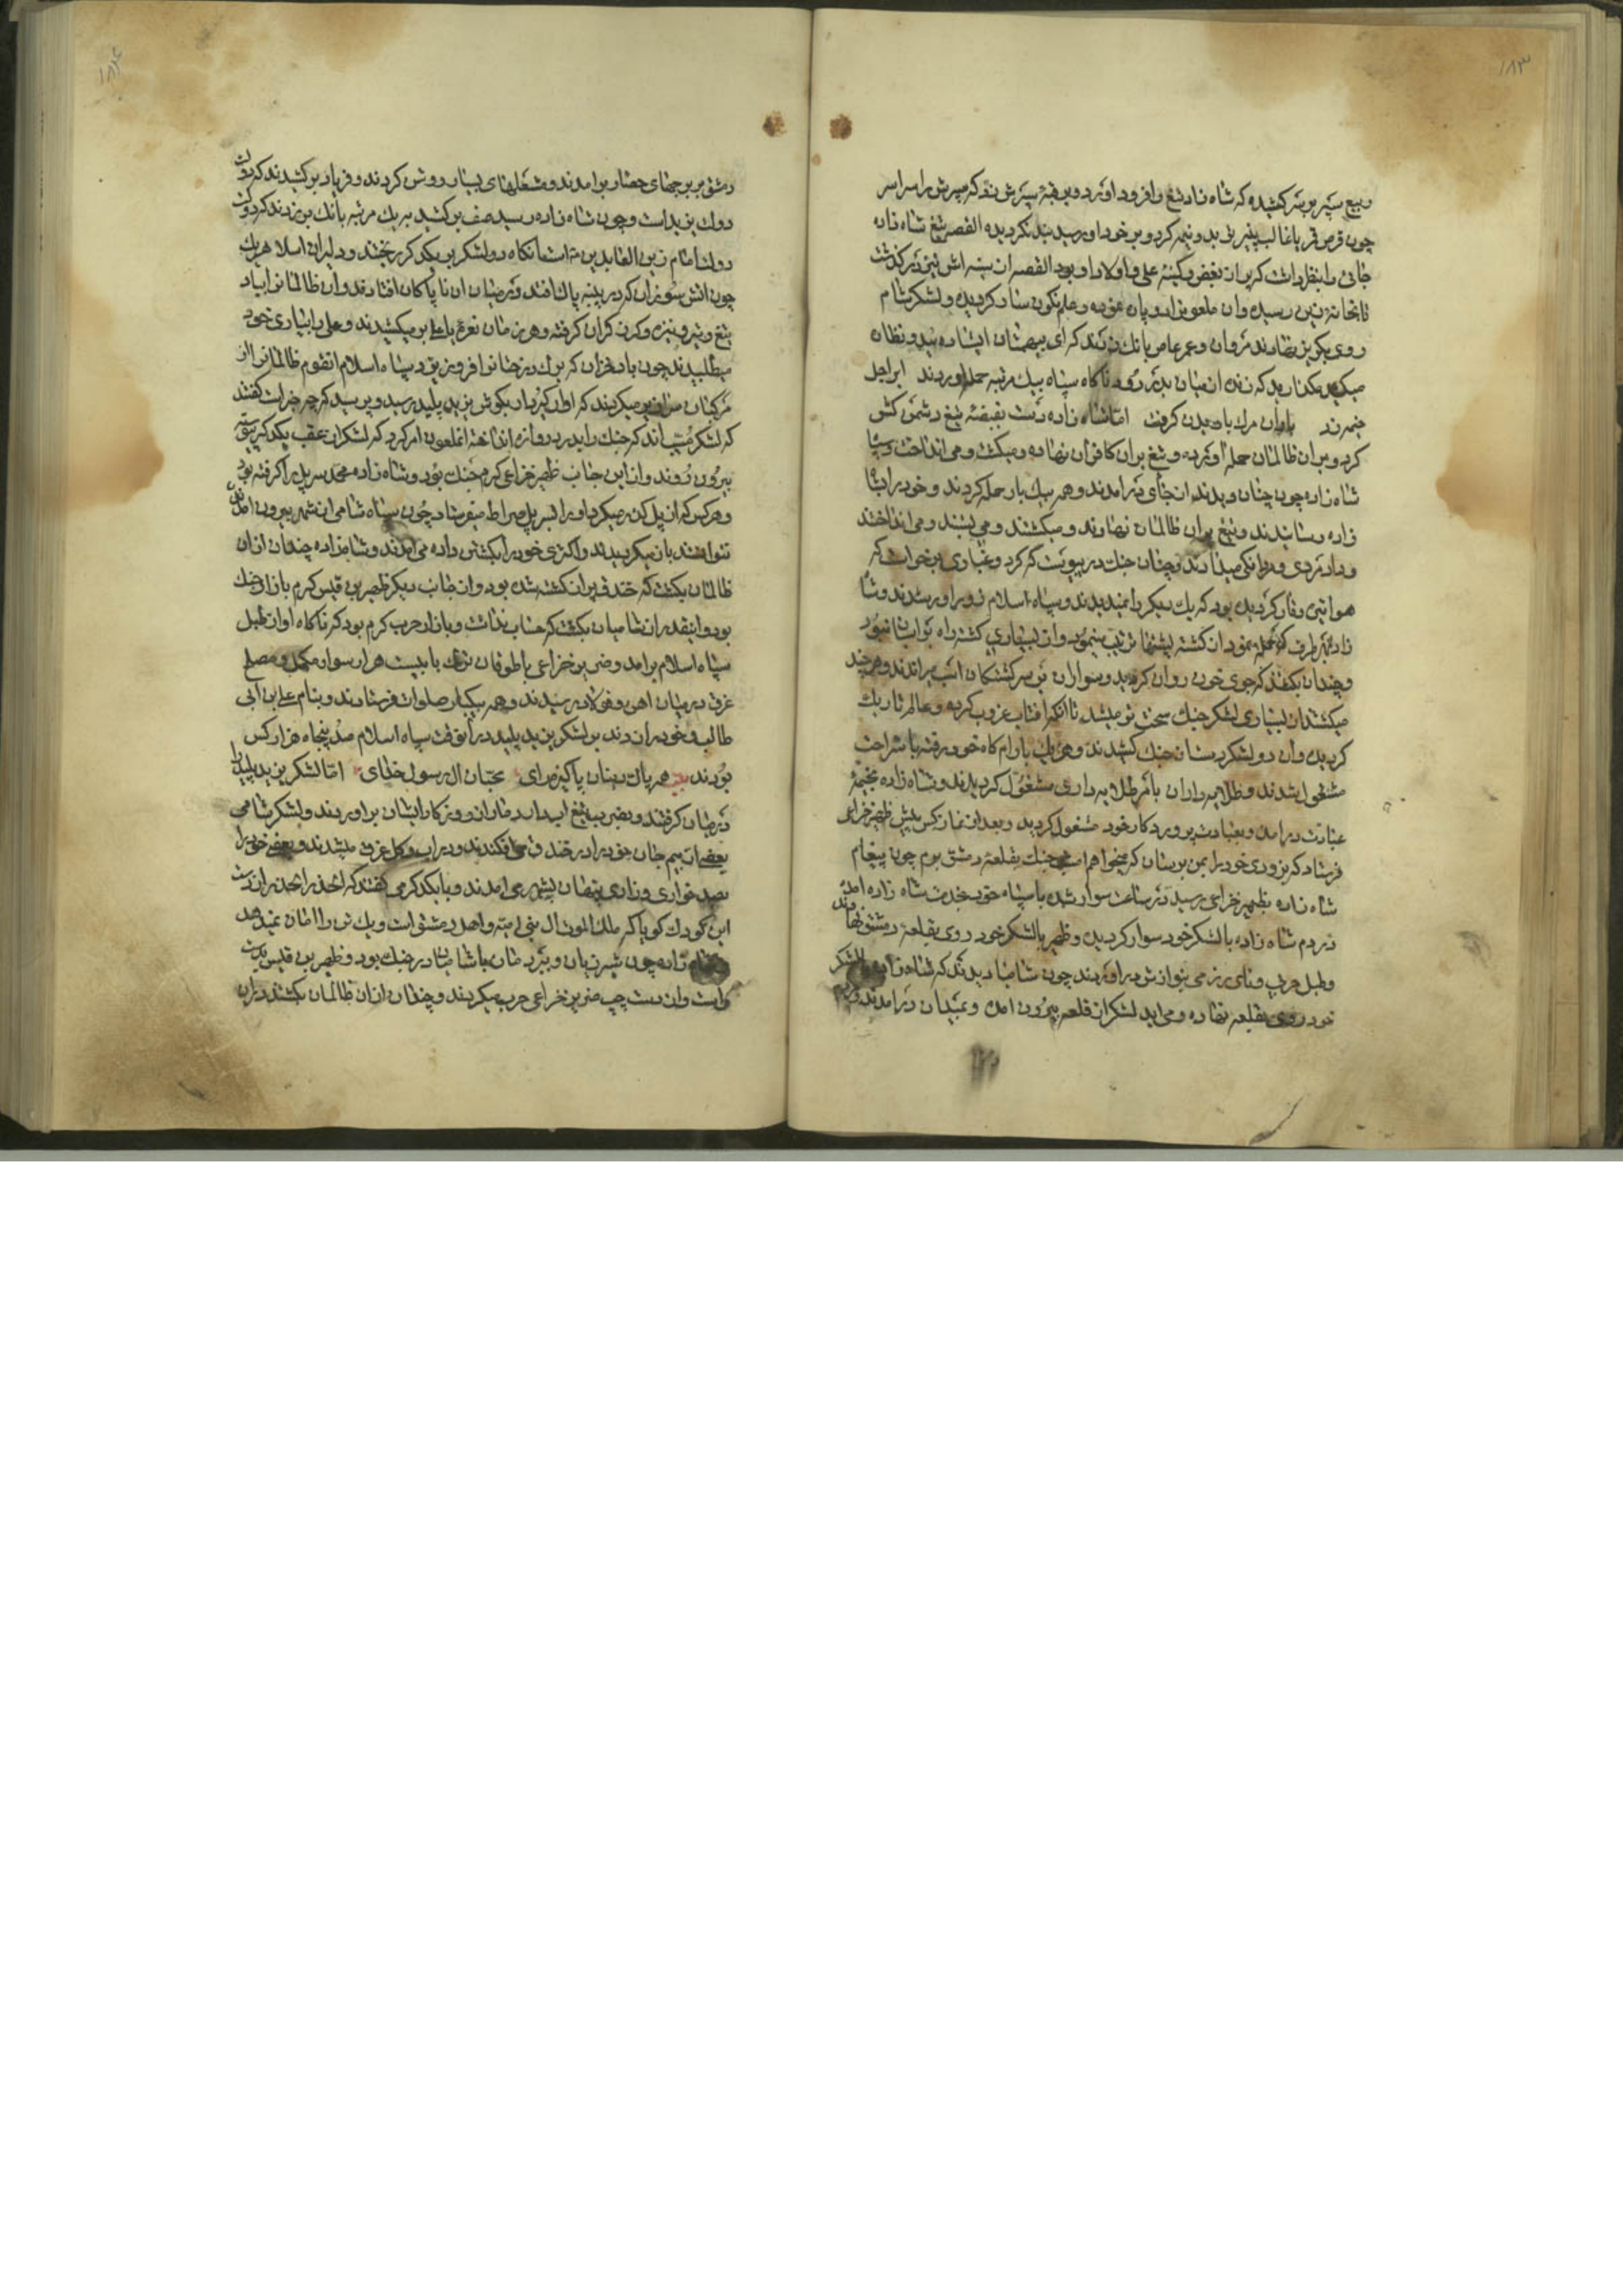 ۱۸۳
ربیع سپر بر سر کشیده که شاه زاد تیغ را فرود اورد و بر قبهٔ سپرش زد که سپرش را سراسر
چون قرص قمر یا غالب پنیر تر بدو نیم کرد و بر خود او رسید بند نکردیده القصه تیغ شاه زاده
جائی را بنظر داشت که پر از بغض و کینهٔ علی و اولاد او بود القصه از سینه اش نیز در کذشت
تا بخانهٔ زین رسید و ان ملعون از دو پاره کردید و علم نکون سار کردید و لشکر شام
روی بکریز نهادند مروان و عمر عاص بانک زدند که ای بیهمتان ایستاده شید و نظاره
میکنید مکذارید که زنده از میان بدر رود ناکاه سپاه بیک مرتبه حمله اوردند ابر اجل
خیمه زد باران مرک باریدن کرفت امّا شاه زاده دست بقبضهٔ تیغ دشمن کش
کرد و بران ظالمان حمله اورد و تیغ بران کافران نهاده و میکشت و می انداخت و سپاه
شاه زاده چون چنان دیدند از جای در امدند و همه بیک بار حمله کردند و خود را بشاه
زاده رسانیدند و تیغ بران ظالمان نهادند و میکشتند و می بستند و می انداختند
و داد مردی و مردانکی میدادند و چنان جنک در پیوست که کرد و غباری برخواست که
هوا تیره و تار کردید بود که یک دیکر را نمیدیدند و سپاه اسلام زور اور شدند و شاه
زاده بهر طرف که حمله نمود از کشته پشتها ترتیب مینمود و از بسیاری کشته راه بر ایشان نبود
و چندان بکشتند که جوی خون روان کردید و سواران بر سر کشتکان اسب میراندند و هر چند
میکشتند از بسیاری لشکر جنک سخت تر میشد تا انکه افتاب غروب کرد و عالم تاریک
کردید و ان دو لشکر دست از جنک کشیدند و هر یک بارام کاه خود رفته باستراحت
مشغول شدند و طلایه داران بامر طلایه داری مشغول کردیدند و شاه زاده بخیمهٔ
عبادت در امد و بعبادت پروردکار خود مشغول کردید و بعد از نماز کس پیش ظهیر خزاعی
فرستاد که بزودی خود را بمن برسان که میخواهم امشب جنک بقلعهٔ دمشق برم چون پیغام
شاه زاده بظهیر خزاعی رسید در ساعت سوار شده با سپاه خود بخدمت شاه زاده امد
در دم شاه زاده با لشکر خود سوار کردید و ظهیر با لشکر خود روی بقلعهٔ دمشق نهادند
و طبل حربی و نای رزمی بنوازش در اوردند چون شامیان دیدند که شاه زاده با لشکر
خود روی بقلعه نهاده و می اید لشکر از قلعه بیرون امد و بمیدان در امدند و مردم
۱۸۴
دمشق بر برجهای حصار برامدند و مشعلهای بسیار روشن کردند و فریاد برکشیدند که دولت
دولت یزید است و چون شاه زاده رسید صف برکشید به یک مرتبه بانک برزدند که دولت
دولت امام زین العابدین است انکاه دو لشکر بر یکدیکر ریختند و دلیران اسلام هر یک
چون اتش سوزان که در پنبه پاک افتد در میان ان ناپاکان افتادند و ان ظالمانرا بباد
تیغ و تیر و نیزه و کرز کران کرفته و هر زمان نعرهٔ یا علی بر میکشیدند و علی را بیاری خود
میطلبیدند چون باد خزان که برک درختانرا فرو ریزد سپاه اسلام انقوم ظالمانرا از
مرکبان سرازیر میکردند که اواز کیر و دار بکوش یزید پلید رسید و پرسید که چه خبر است کفتند
که لشکر مسیب اند که جنک را بدر دروازه انداخته انملعون امر کرد که لشکر از عقب یکدیکر پیوسته
بیرون روند و از این جانب ظهیر خزاعی کرم جنک بود و شاه زاده محمد سر پل را کرفته بود
و هر کس که از پل کذر میکرد او را بسر پل صراط میفرستاد چون سپاه شامی از شهر بیرون امدن
نتوانستند باز میکردیدند و اکثری خود را بکشتن داده می امدند و شاهزاده چندان ازان
ظالمان بکشت که خندق پر از کشته شده بود و از جانب دیکر ظهیر بن قیس کرم بازار جنک
بود و اینقدر ازان شامیان بکشت که حساب نداشت و بازار حرب کرم بود که ناکاه اواز طبل
سپاه اسلام برامد و ضریر خزاعی با طوغان ترک با بیست هزار سوار مکمل و مصلح
غرق در میان اهن و فولاد رسیدند و همه بیکبار صلوات فرستادند و بنام علی ابن ابی
طالب و خود را زدند بر لشکر یزید پلید در انوقت سپاه اسلام صد پنجاه هزار کس
بودند بیت همه پاک دینان پاکیزه رای محبان ال رسول خدای امّا لشکر یزید پلید را
در میان کرفتند و بضرب تیغ ابدار دمار از روزکار ایشان براوردند و لشکر شامی
بعضی از بیم جان خود را در خندق می افکندند و در اب و کل غرق میشدند و بعضی خود را
بصد خواری و زاری پنهان بشهر می امدند و با یکدیکر می کفتند که الحذر الحذر از دست
این کودک کویا که ملک الموت ال بنی امیّه و اهل دمشق است و یک تن را امان نمیدهد
زاده چون شیر ژیان و ببر دمان با شامیان در جنک بود و ظهیر بن قیس بدست
راست و از دست چپ ضریر خزاعی حرب میکردند و چندان ازان ظالمان بکشتند دران